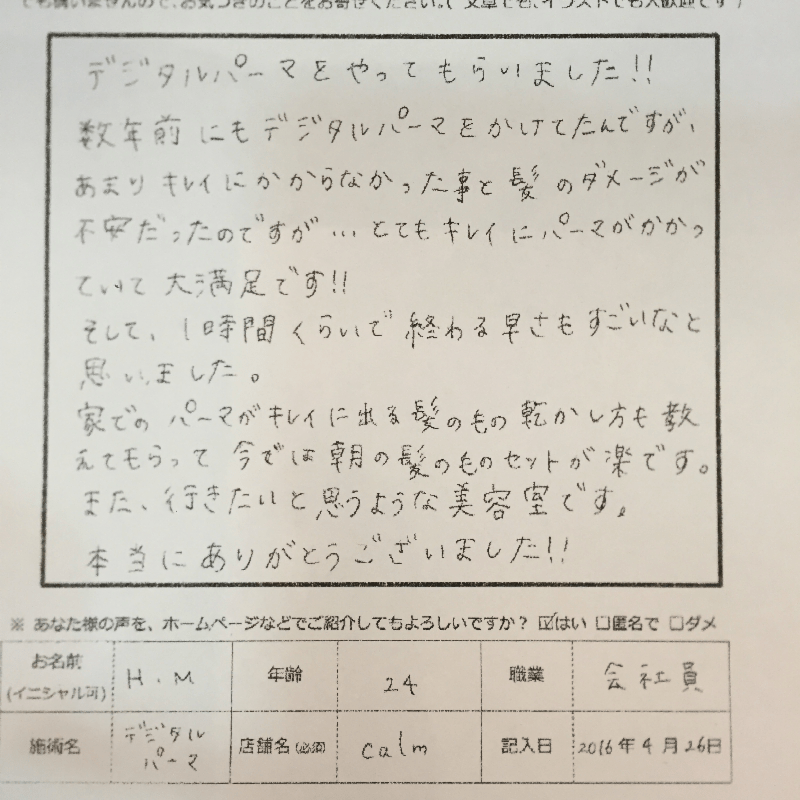 でも構いませんので、お気づきのことをお寄せください。(文章でも、イラストでも大歓迎です)
デジタルパーマをやってもらいました!!
数年前にもデジタルパーマをかけてたんですが、
あまりキレイにかからなかった事と髪のダメージが
不安だったのですが…とてもキレイにパーマがかかっ
ていて大満足です!!
そして、1時間くらいで終わる早さもすごいなと
思いました。
家でのパーマがキレイに出る髪のもの乾かし方も教
えてもらって今では朝の髪のものセットが楽です。
また、行きたいと思うような美容室です。
本当にありがとうございました!!
※ あなた様の声を、ホームページなどでご紹介してもよろしいですか? ☑はい □匿名で □ダメ
お名前 (イニシャル可) H.M 年齢 24 職業 会社員
施術名 デジタルパーマ 店舗名(必須) calm 記入日 2016年4月26日